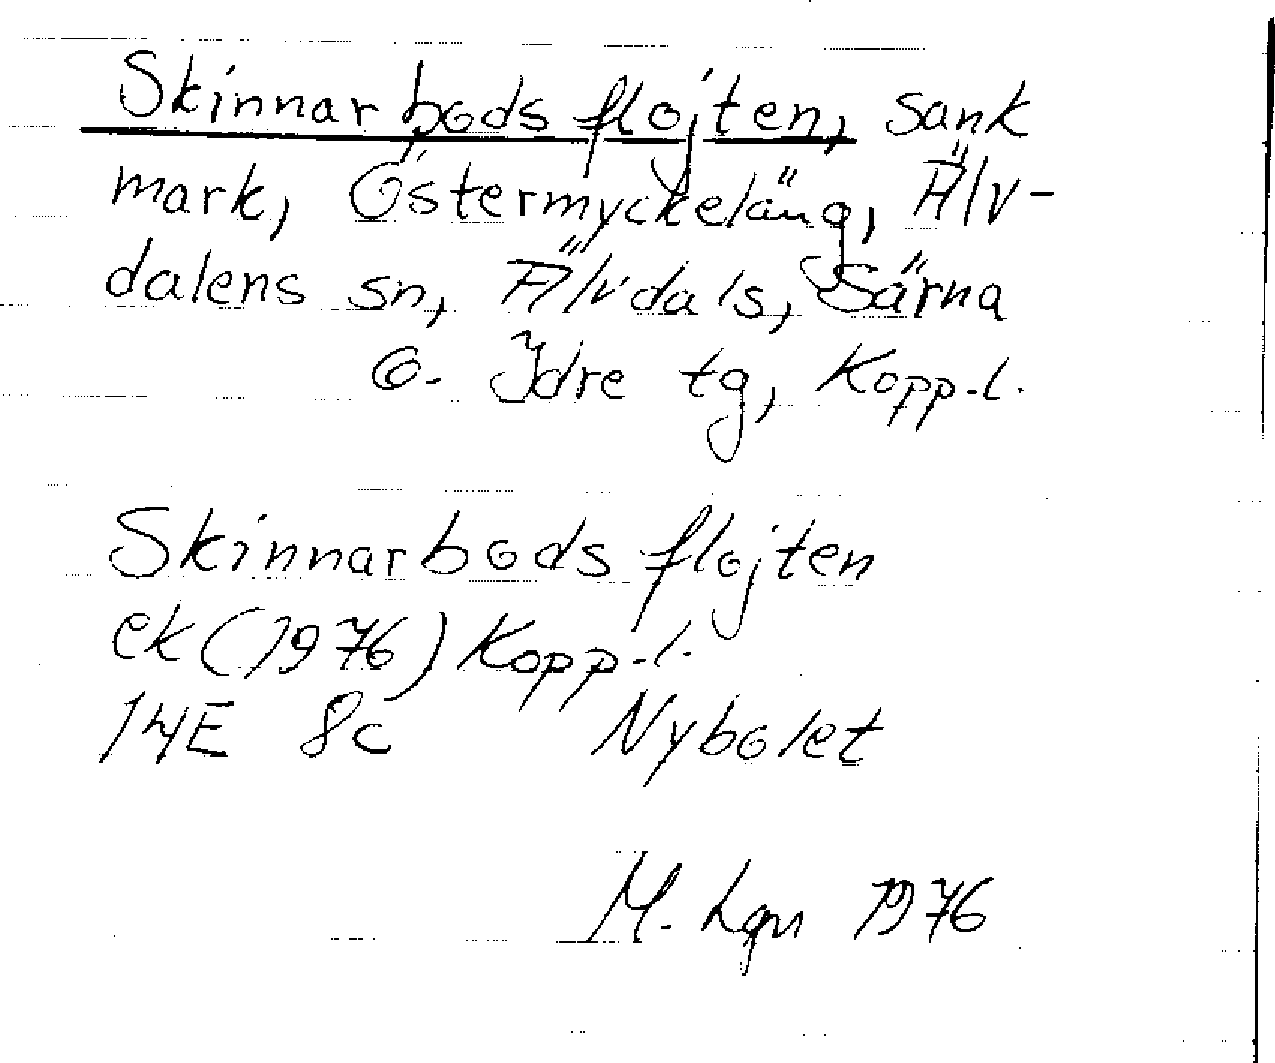 Skinnarbodsflojten, sank
mark, Östermyckeläng, Älv-
dalens sn, Älvdals, Särna
o. Idre tg, Kopp.l.
Skinnarbodsflojten
ek (1976) Kopp.l.
14E 8c Nybolet
M. Lgn 1976